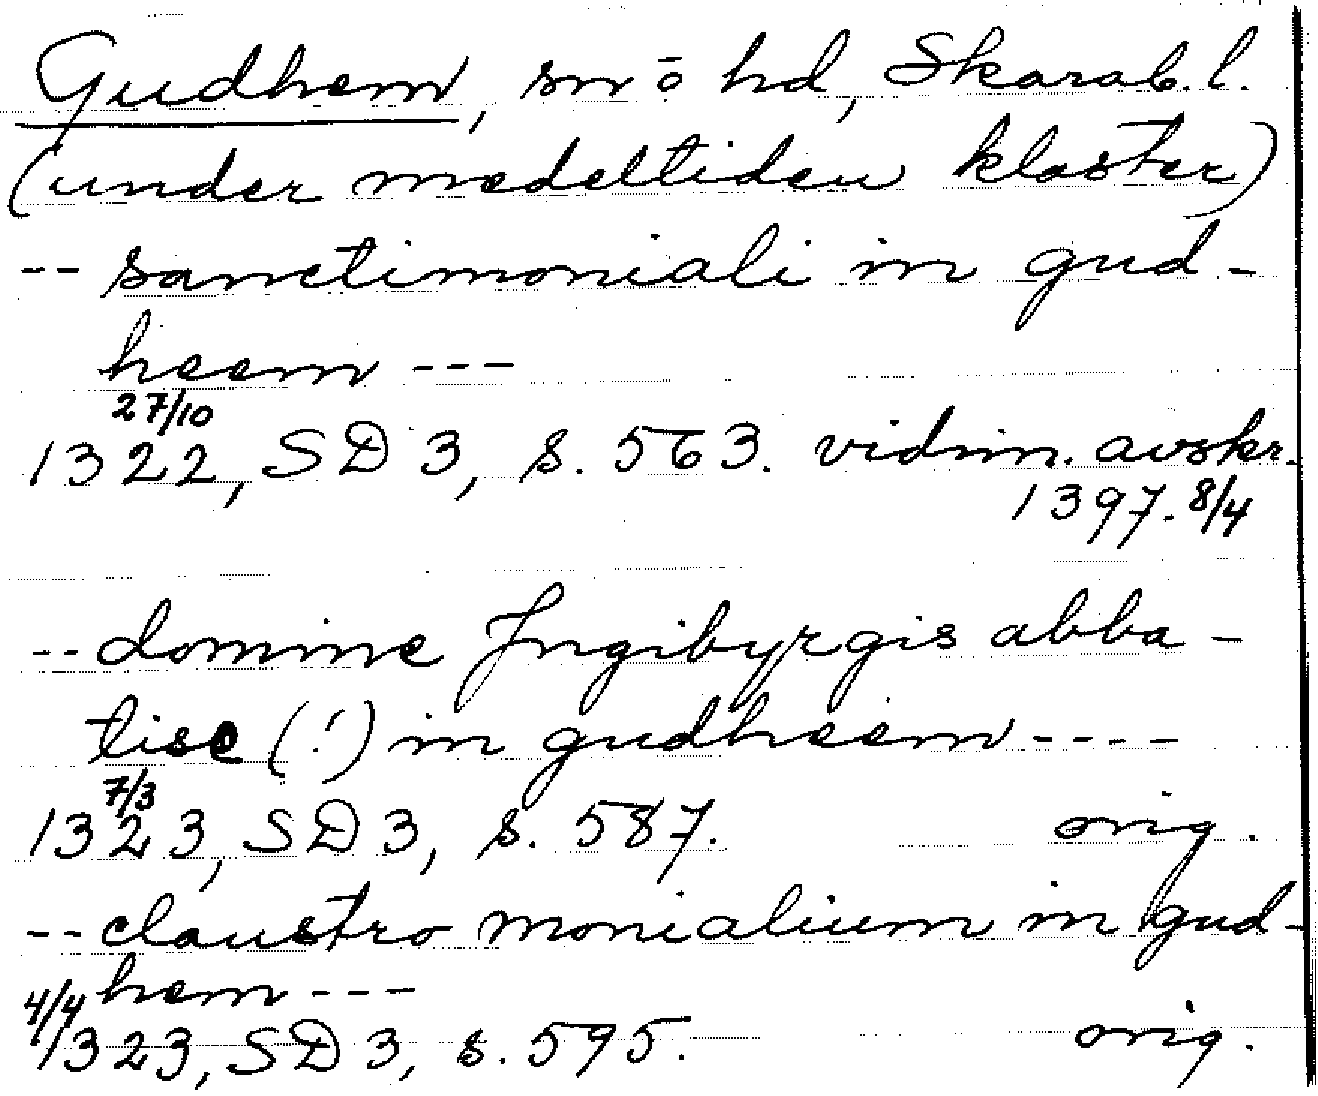 Gudhem, sn o hd, Skarab.l.
(under medeltiden kloster)
-- sanctimoniali in gud-
heem ---
27/10
1322, SD 3, s. 563. vidim. avskr.
1397. 8/4
-- domine Jngibyrgis abba-
tise (!) in gudheem ----
7/3
1323, SD 3, s. 587. orig.
-- claustro monialium in gud-
hem ---
4/4
1323, SD 3, s. 595. orig.